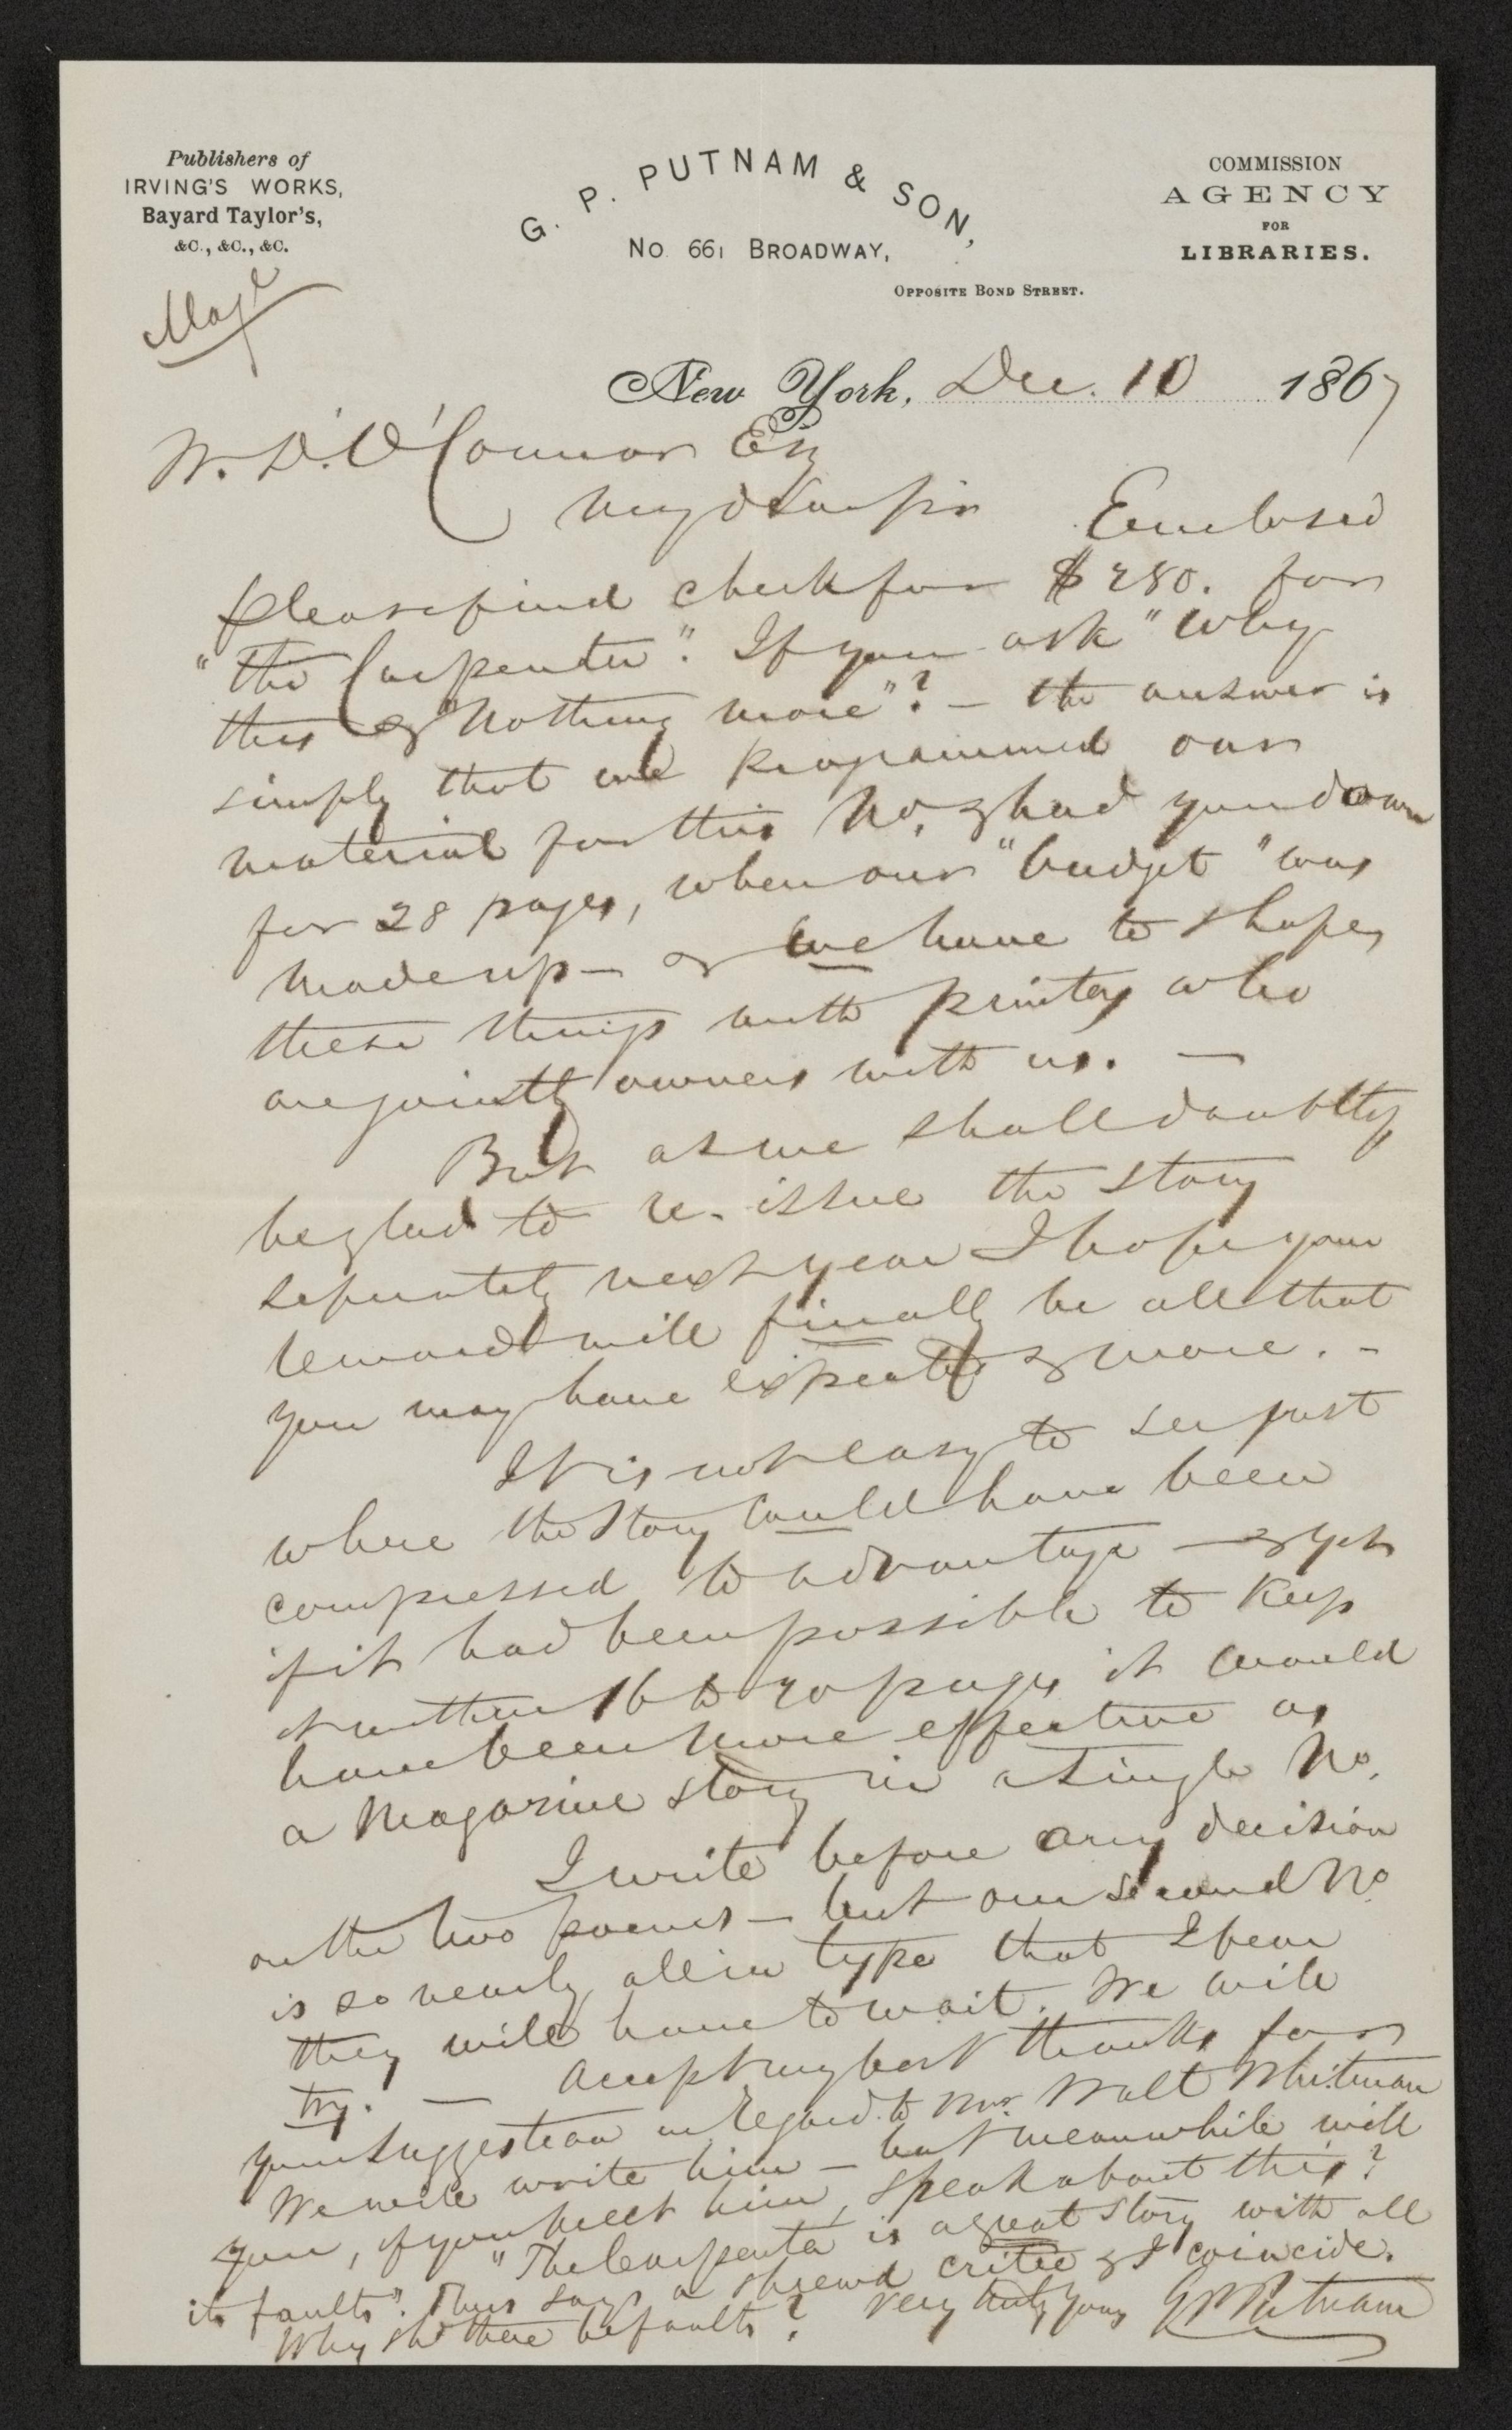 Publishers of
IRVING'S WORKS,
Bayard Taylor's,
&C., &C., &C.
G. P. PUTNAM & SON,
No. 661 BROADWAY,
OPPOSITE BOND STREET.
COMMISSION
AGENCY
FOR
LIBRARIES.
New York, Dec. 10 1867
W. D. O'Connor Esq
My d Sir Enclosed
please find check for $280. for
"the Carpenter". If you ask "Why
this & nothing more"? — the answer is
simply that we programmed our
material for this No. & had you down
for 28 pages, when our "budget" was
made up — & we have to shape
these things with printers who
are jointly owners with us. —
But as we shall doubtless
be glad to re-issue the story
separately next year I hope your
reward will finally be all that
you may have expected & more. -
It is not easy to see just
where the story could have been
compressed to advantage — & yet
if it had been possible to keep
it within 16 to 20 pages it would
have been more effective as
a Magazine story in a single No.
I write before any decision
on the two poems — but our second No
is so nearly all in type that I fear
they will have to wait. We will
try. — Accept my best thanks for
your suggestion in regard to Mr. Walt Whitman
We will write him — but meanwhile will
you, if you meet him, speak about this?
"The Carpenter is a great story with all
its faults". Thus says a shrewd critic & I coincide.
Why shd there be faults? Very truly yours G P Putnam